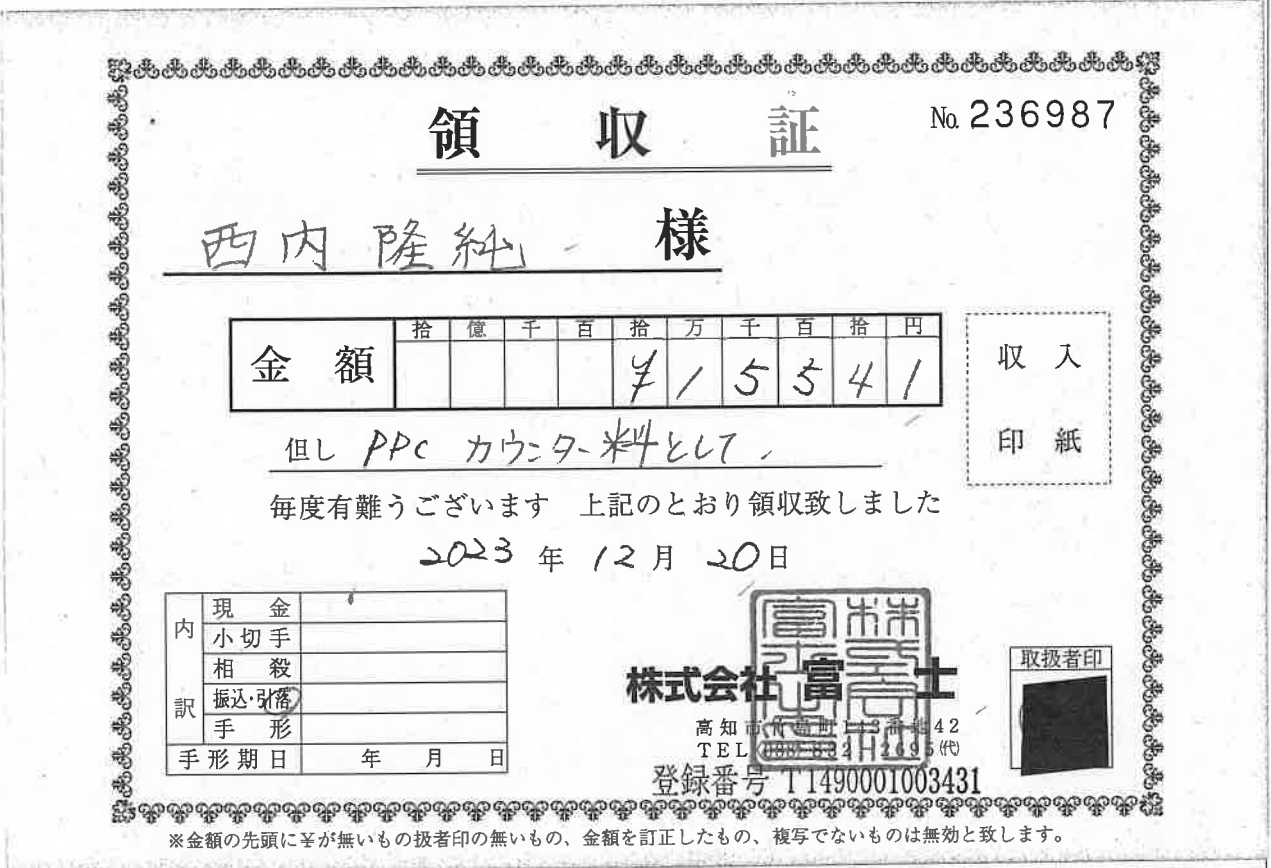 領収証
No. 236987
西内 隆純 様
金額
拾 億 千 百 拾 万 千 百 拾 円
¥ 1 5 5 4 1
収入
印紙
但し PPC カウンター料として.
毎度有難うございます 上記のとおり領収致しました
2023 年 12 月 20 日
内訳
現金
小切手
相殺
振込・引落
手形
手形期日 年 月 日
株式会社 富士
高知市 42
TEL (代)
登録番号 T1490001003431
取扱者印
※金額の先頭に¥が無いもの扱者印の無いもの、金額を訂正したもの、複写でないものは無効と致します。